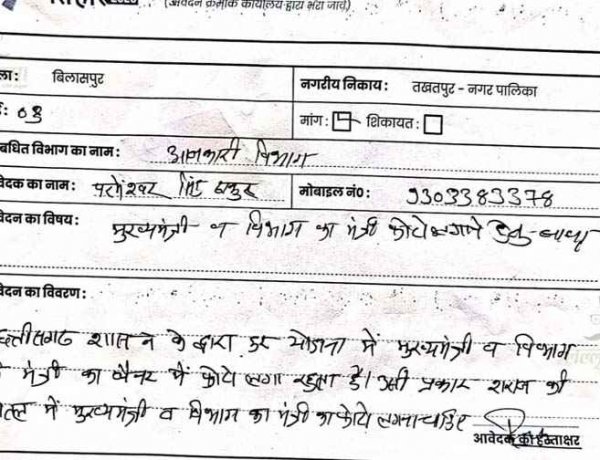 (आवेदन क्रमांक कार्यालय द्वारा भरा जावे)
ला: बिलासपुर
नगरीय निकाय: तखतपुर - नगर पालिका
: 08
मांग: शिकायत:
बंधित विभाग का नाम: आबकारी विभाग
वेदक का नाम: परमेश्वर सिंह ठाकुर
मोबाइल नं०: 9303383378
वेदन का विषय: मुख्यमंत्री व विभाग का मंत्री फोटो लगाने हेतु
वेदन का विवरण:
छत्तीसगढ शासन के द्वारा हर योजना में मुख्यमंत्री व विभाग
मंत्री का बैनर में फोटो लगा रहता है। उसी प्रकार शराब की
में मुख्यमंत्री व विभाग का मंत्री का फोटो लगना चाहिए
आवेदक का हस्ताक्षर